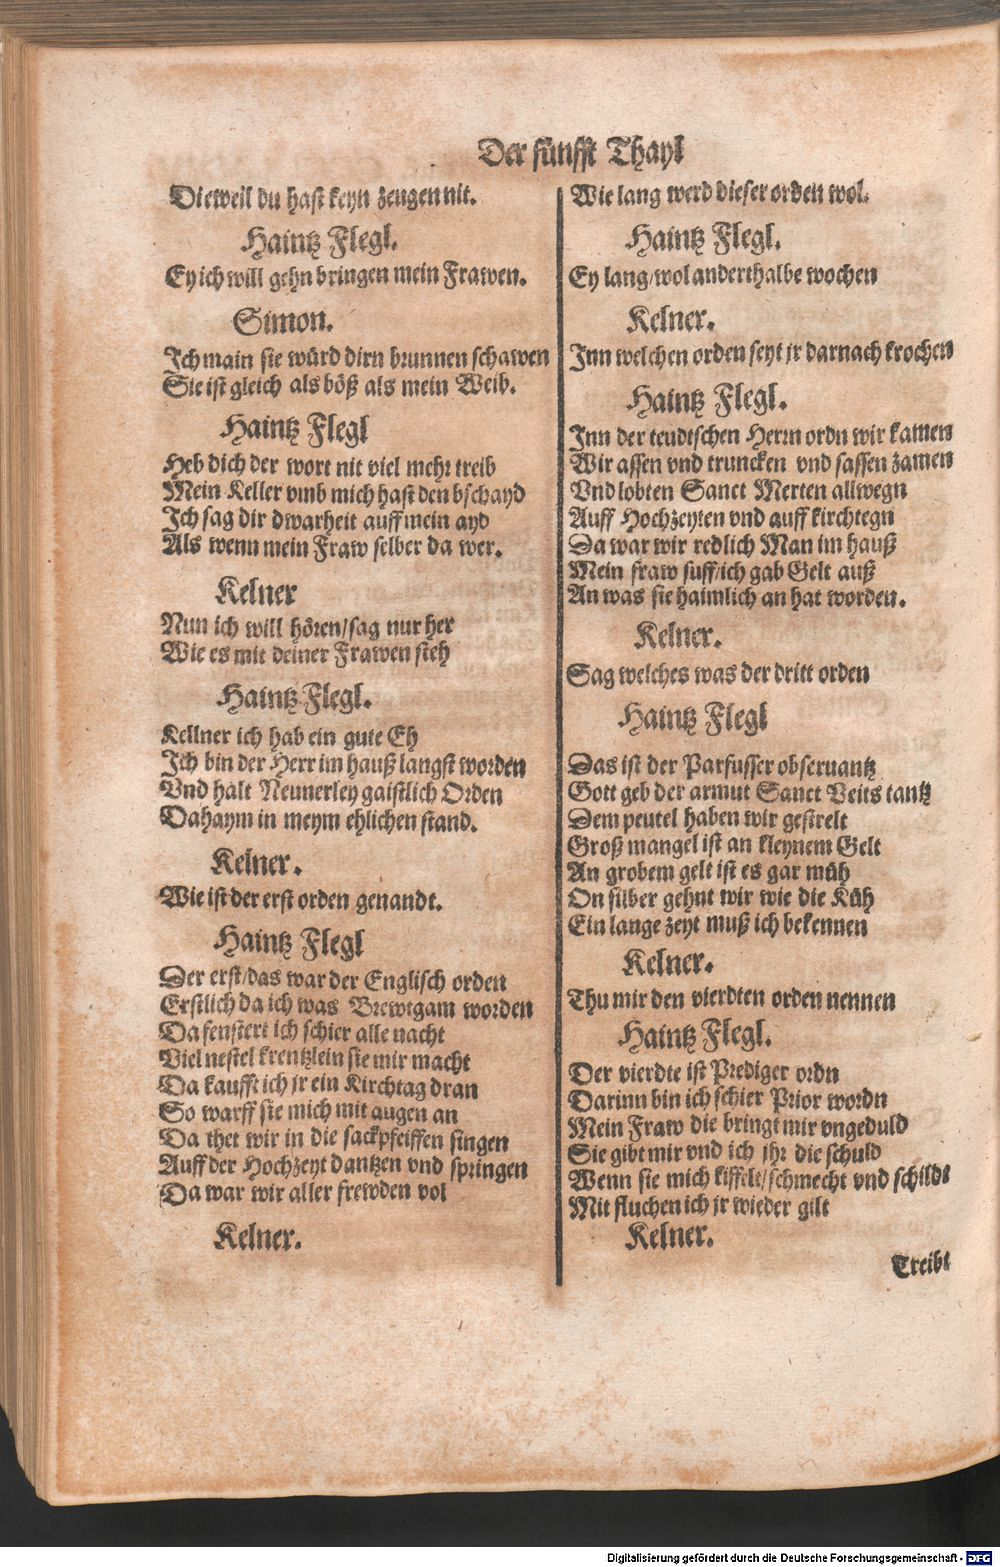 Der fünfft Thayl
Dieweil du hast keyn zeugen nit.
Haintz Flegl.
Ey ich will gehn bringen mein Frawen.
Simon.
Ich main sie würd dirn brunnen schawen
Sie ist gleich als böß als mein Weib.
Haintz Flegl
Heb dich der wort nit viel mehr treib
Mein Keller vmb mich hast den bschayd
Ich sag dir dwarheit auff mein ayd
Als wenn mein Fraw selber da wer.
Kelner
Nun ich will hören/sag nur her
Wie es mit deiner Frawen steh
Haintz Flegl.
Kellner ich hab ein gute Eh
Ich bin der Herr im hauß langst worden
Vnd halt Neunerley gaistlich Orden
Dahaym in meym ehlichen stand.
Kelner.
Wie ist der erst orden genandt.
Haintz Flegl
Der erst/das war der Englisch orden
Erstlich da ich was Brewtgam worden
Da fenstert ich schier alle nacht
Viel nestel krentzlein sie mir macht
Da kaufft ich jr ein Kirchtag dran
So warff sie mich mit augen an
Da thet wir in die sackpfeiffen singen
Auff der Hochzeyt dantzen vnd springen
Da war wir aller frewden vol
Kelner.
Wie lang werd dieser orden wol.
Haintz Flegl.
Ey lang/wol anderthalbe wochen
Kelner.
Inn welchen orden seyt jr darnach krochen
Haintz Flegl.
Inn der teudtschen Herrn ordn wir kamen
Wir assen vnd truncken vnd sassen zamen
Vnd lobten Sanct Merten allwegn
Auff Hochzeyten vnd auff kirchtegn
Da war wir redlich Man im hauß
Mein fraw suff/ich gab Gelt auß
An was sie haimlich an hat worden.
Kelner.
Sag welches was der dritt orden
Haintz Flegl
Das ist der Parfusser obseruantz
Gott geb der armut Sanct Veits tantz
Dem peutel haben wir gestrelt
Groß mangel ist an kleynem Gelt
An grobem gelt ist es gar müh
On silber gehnt wir wie die Küh
Ein lange zeyt muß ich bekennen
Kelner.
Thu mir den vierdten orden nennen
Haintz Flegl.
Der vierdte ist Prediger ordn
Darinn bin ich schier Prior wordn
Mein Fraw die bringt mir vngeduld
Sie gibt mir vnd ich jhr die schuld
Wenn sie mich kiffelt/schmecht vnd schildt
Mit fluchen ich jr wieder gilt
Kelner.
Treibt
Digitalisierung gefördert durch die Deutsche Forschungsgemeinschaft - DFG